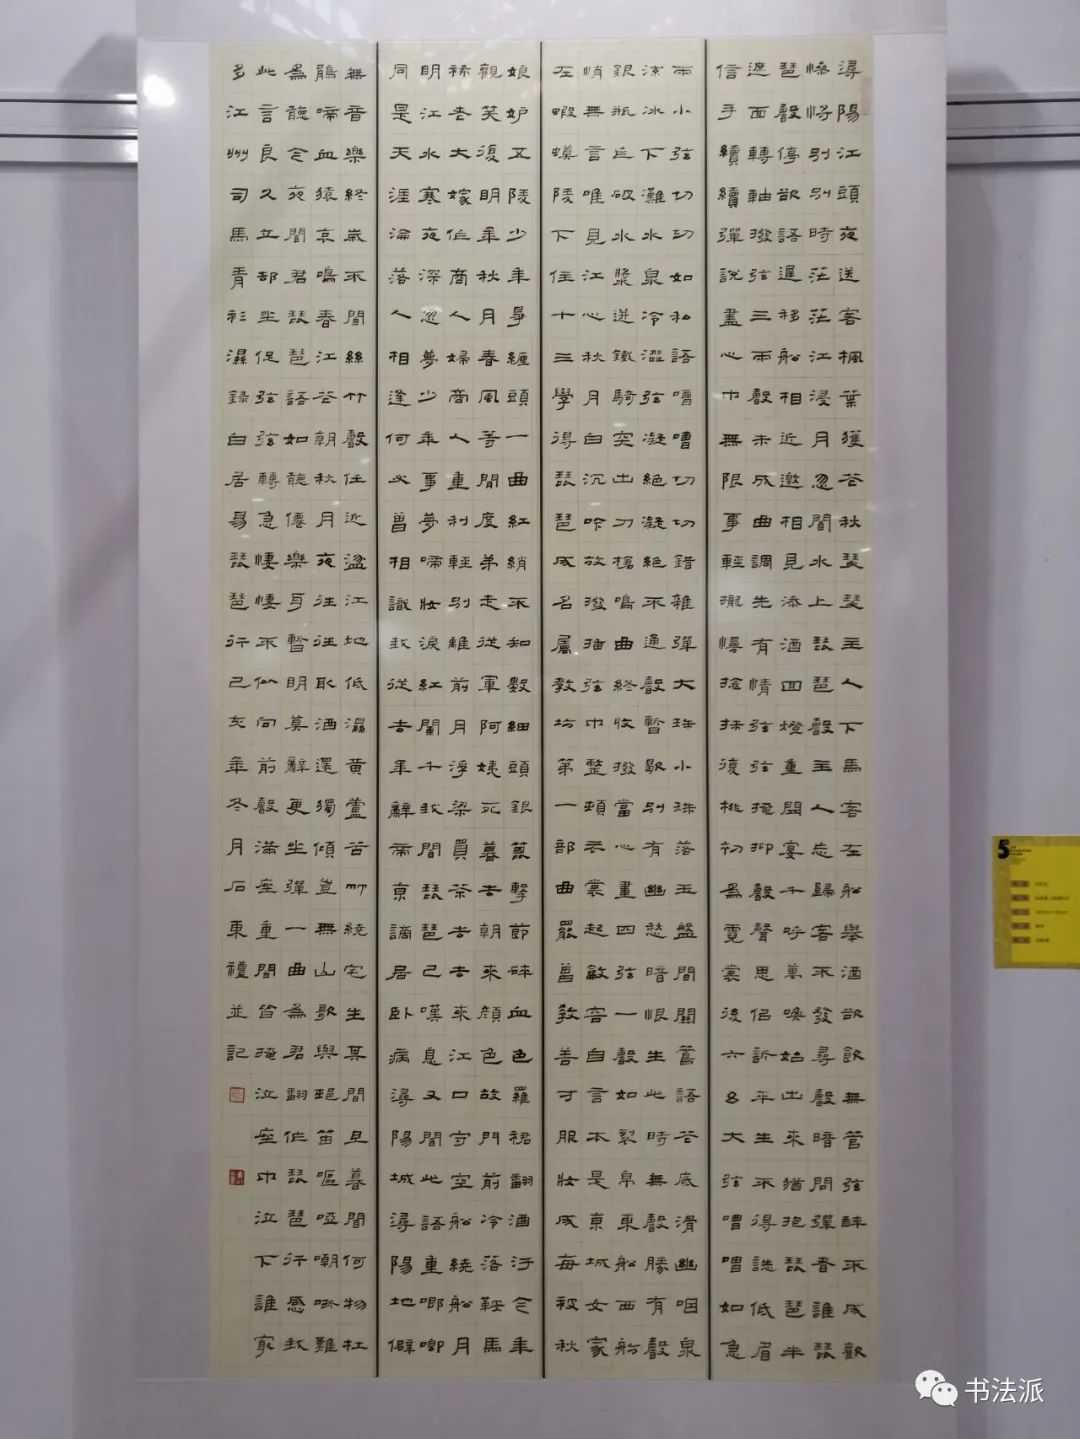 潯陽江頭夜送客楓葉荻花秋瑟瑟主人下馬客在船舉酒欲飲無管弦醉不成歡
慘將別別時茫茫江浸月忽聞水上琵琶聲主人忘歸客不發尋聲暗問彈者誰琵
琶聲停欲語遲移船相近邀相見添酒回燈重開宴千呼萬喚始出來猶抱琵琶半
遮面轉軸撥弦三兩聲未成曲調先有情弦弦掩抑聲聲思似訴平生不得誌低眉
信手續續彈說盡心中無限事輕攏慢捻抹復挑初為霓裳後六么大弦嘈嘈如急
雨小弦切切如私語嘈嘈切切錯雜彈大珠小珠落玉盤間關鶯語花底滑幽咽泉
流冰下灘水泉冷澀弦凝絕凝絕不通聲暫歇別有幽愁暗恨生此時無聲勝有聲
銀瓶乍破水漿迸鐵騎突出刀槍鳴曲終收撥當心畫四弦一聲如裂帛東船西舫
悄無言唯見江心秋月白沉吟放撥插弦中整頓衣裳起斂容自言本是京城女家
在蝦蟆陵下住十三學得琵琶成名屬教坊第一部曲罷曾教善才服妝成每被秋
娘妒五陵少年爭纏頭一曲紅綃不知數細頭銀篦擊節碎血色羅裙翻酒汙今年
歡笑復明年秋月春風等閒度弟走從軍阿姨死暮去朝來顏色故門前冷落鞍馬
稀去大嫁作商人婦商人重利輕別離前月浮梁買茶去去來江口守空船繞船月
明江水寒夜深忽夢少年事夢啼妝淚紅闌干我聞琵琶已嘆息又聞此語重唧唧
同是天涯淪落人相逢何必曾相識我從去年辭帝京謫居臥病潯陽城潯陽地僻
無音樂終歲不聞絲竹聲住近湓江地低濕黃蘆苦竹繞宅生其間旦暮聞何物杜
鵑啼血猿哀鳴春江花朝秋月夜往往取酒還獨傾豈無山歌與邨笛嘔啞嘲哳難
為聽今夜聞君琵琶語如聽僊樂耳暫明莫辭更坐彈一曲為君翻作琵琶行感我
此言良久立卻坐促弦弦轉急悽悽不似向前聲滿座重聞皆掩泣座中泣下誰最
多江州司馬青衫濕錄白居易琵琶行己亥年冬月石東禮並記
5
书法派